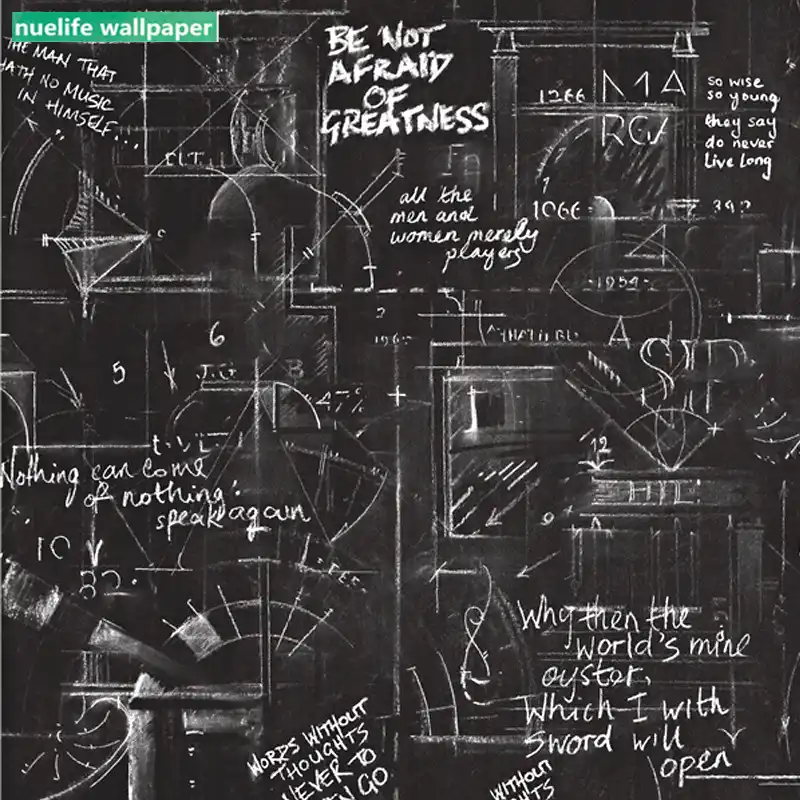 nuelife wallpaper
THE MAN THAT
HATH NO MUSIC
IN HIMSELF...
BE NOT
AFRAID
OF
GREATNESS
so wise
so young
they say
do never
live long
1266
1066
all the
men and
women merely
players
1954
A
6
5
J.G
B
47%
12
Nothing can come
of nothing:
speak again
10
Why then the
world's mine
oyster,
Which I with
sword will
open
WORDS WITHOUT
THOUGHTS
NEVER TO
GO
WITHOUT